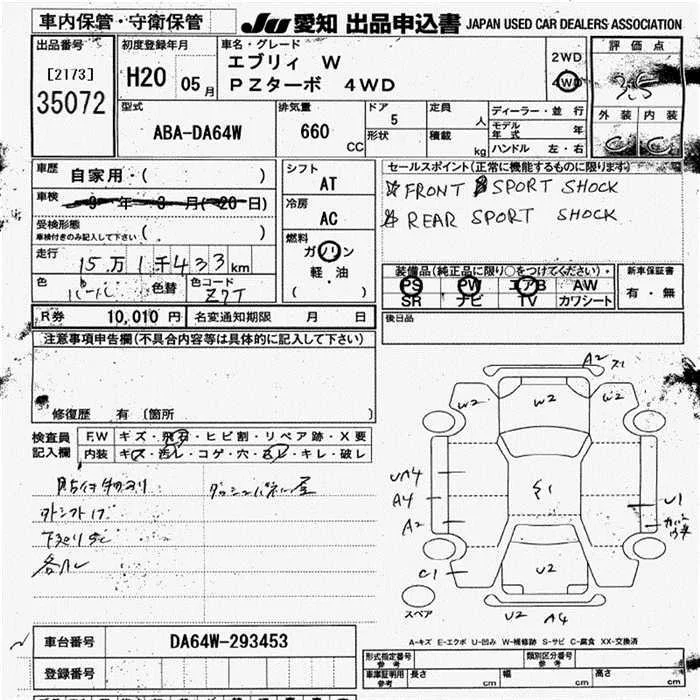 車内保管・守衛保管
JU 愛知 出品申込書 JAPAN USED CAR DEALERS ASSOCIATION
出品番号
[2173]
35072
初度登録年月
H20 05月
車名・グレード
エブリィ W
PZターボ 4WD
2WD
4WD
評価点
3.5
外装 内装
C C
型式
ABA-DA64W
排気量
660 CC
ドア
5
形状
定員
人
積載
kg
ディーラー・並行
モデル年式 年
ハンドル 左・右
車歴
自家用・( )
車検
年 月( 日)
受検形態
車検付きのみ記入して下さい ( )
走行
15万1千433km
色
パール
色替
色コード
Z7T
シフト
AT
冷房
AC
燃料
ガソリン
軽・油
( )
セールスポイント(正常に機能するものに限ります)
☆FRONT SPORT SHOCK
☆REAR SPORT SHOCK
装備品(純正品に限り○をつけてください)・
PS PW エアB AW
SR ナビ TV カワシート
新車保証書
有・無
後日品
R券 10,010円 名変通知期限 月 日
注意事項申告欄(不具合内容等は具体的に記入して下さい)
修復歴 有〔箇所
検査員記入欄
F.W キズ・飛石・ヒビ割・リペア跡・X要
内装 キズ・汚レ・コゲ・穴・スレ・キレ・破レ
外シフト
下廻り
A2
W2
W2
W2
UA4
A4
A2
C1
U1
U2
U2 A4
スペア
A-キズ E-エクボ U-凹み W-補修跡 S-サビ C-腐食 XX-交換済
車台番号 DA64W-293453
登録番号
形式指定番号
参考
類別区分番号
参考
車庫証明用
参考
長さ cm 幅 cm 高さ cm